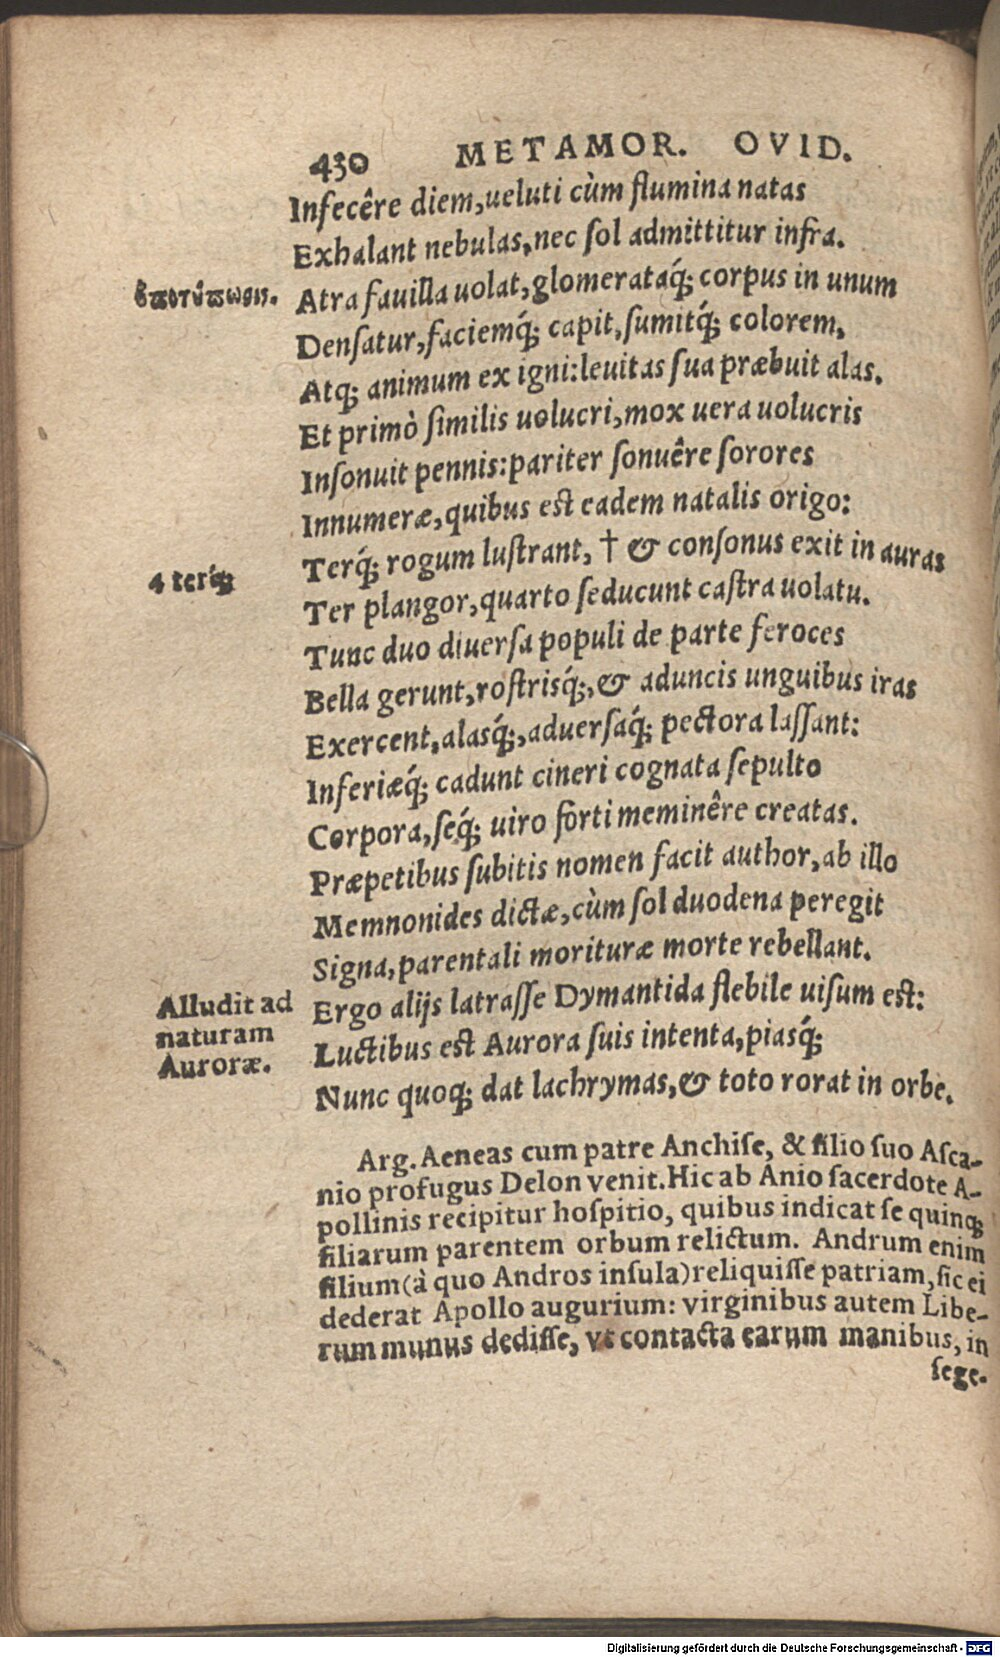 430 METAMOR. OVID.
Infecêre diem,ueluti cùm flumina natas
Exhalant nebulas,nec ſol admittitur infra.
ὑποτύπωσις. Atra fauilla uolat,glomerataq́; corpus in unum
Denſatur,faciemq́; capit,ſumitq́; colorem,
Atq; animum ex igni:leuitas ſua præbuit alas.
Et primò ſimilis uolucri,mox uera uolucris
Inſonuit pennis:pariter ſonuêre ſorores
Innumeræ,quibus eſt eadem natalis origo:
Terq́; rogum luſtrant, † & conſonus exit in auras
4 terq́; Ter plangor,quarto ſeducunt caſtra uolatu.
Tunc duo diuerſa populi de parte feroces
Bella gerunt,roſtrisq́;,& aduncis unguibus iras
Exercent,alasq́;,aduerſaq́; pectora laſſant:
Inferiæq́; cadunt cineri cognata ſepulto
Corpora,ſeq́; uiro forti meminêre creatas.
Præpetibus ſubitis nomen facit author,ab illo
Memnonides dictæ,cùm ſol duodena peregit
Signa,parentali morituræ morte rebellant.
Alludit ad Ergo alijs latraſſe Dymantida flebile uiſum eſt:
naturam Luctibus eſt Aurora ſuis intenta,piasq́;
Auroræ. Nunc quoq; dat lachrymas,& toto rorat in orbe.
Arg. Aeneas cum patre Anchiſe, & filio ſuo Aſca-
nio profugus Delon venit.Hic ab Anio ſacerdote A-
pollinis recipitur hoſpitio, quibus indicat ſe quinq;
filiarum parentem orbum relictum. Andrum enim
filium(à quo Andros inſula)reliquiſſe patriam,ſic ei
dederat Apollo augurium: virginibus autem Libe-
rum munus dediſſe, vt contacta earum manibus, in
ſege-
Digitalisierung gefördert durch die Deutsche Forschungsgemeinschaft - DFG